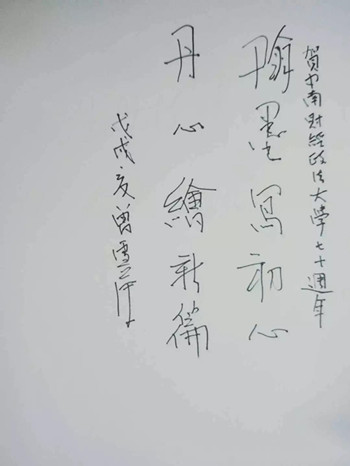 賀中南財經政法大學七十週年
翰墨寫初心
丹心繪新篇
戊戌夏曾雪